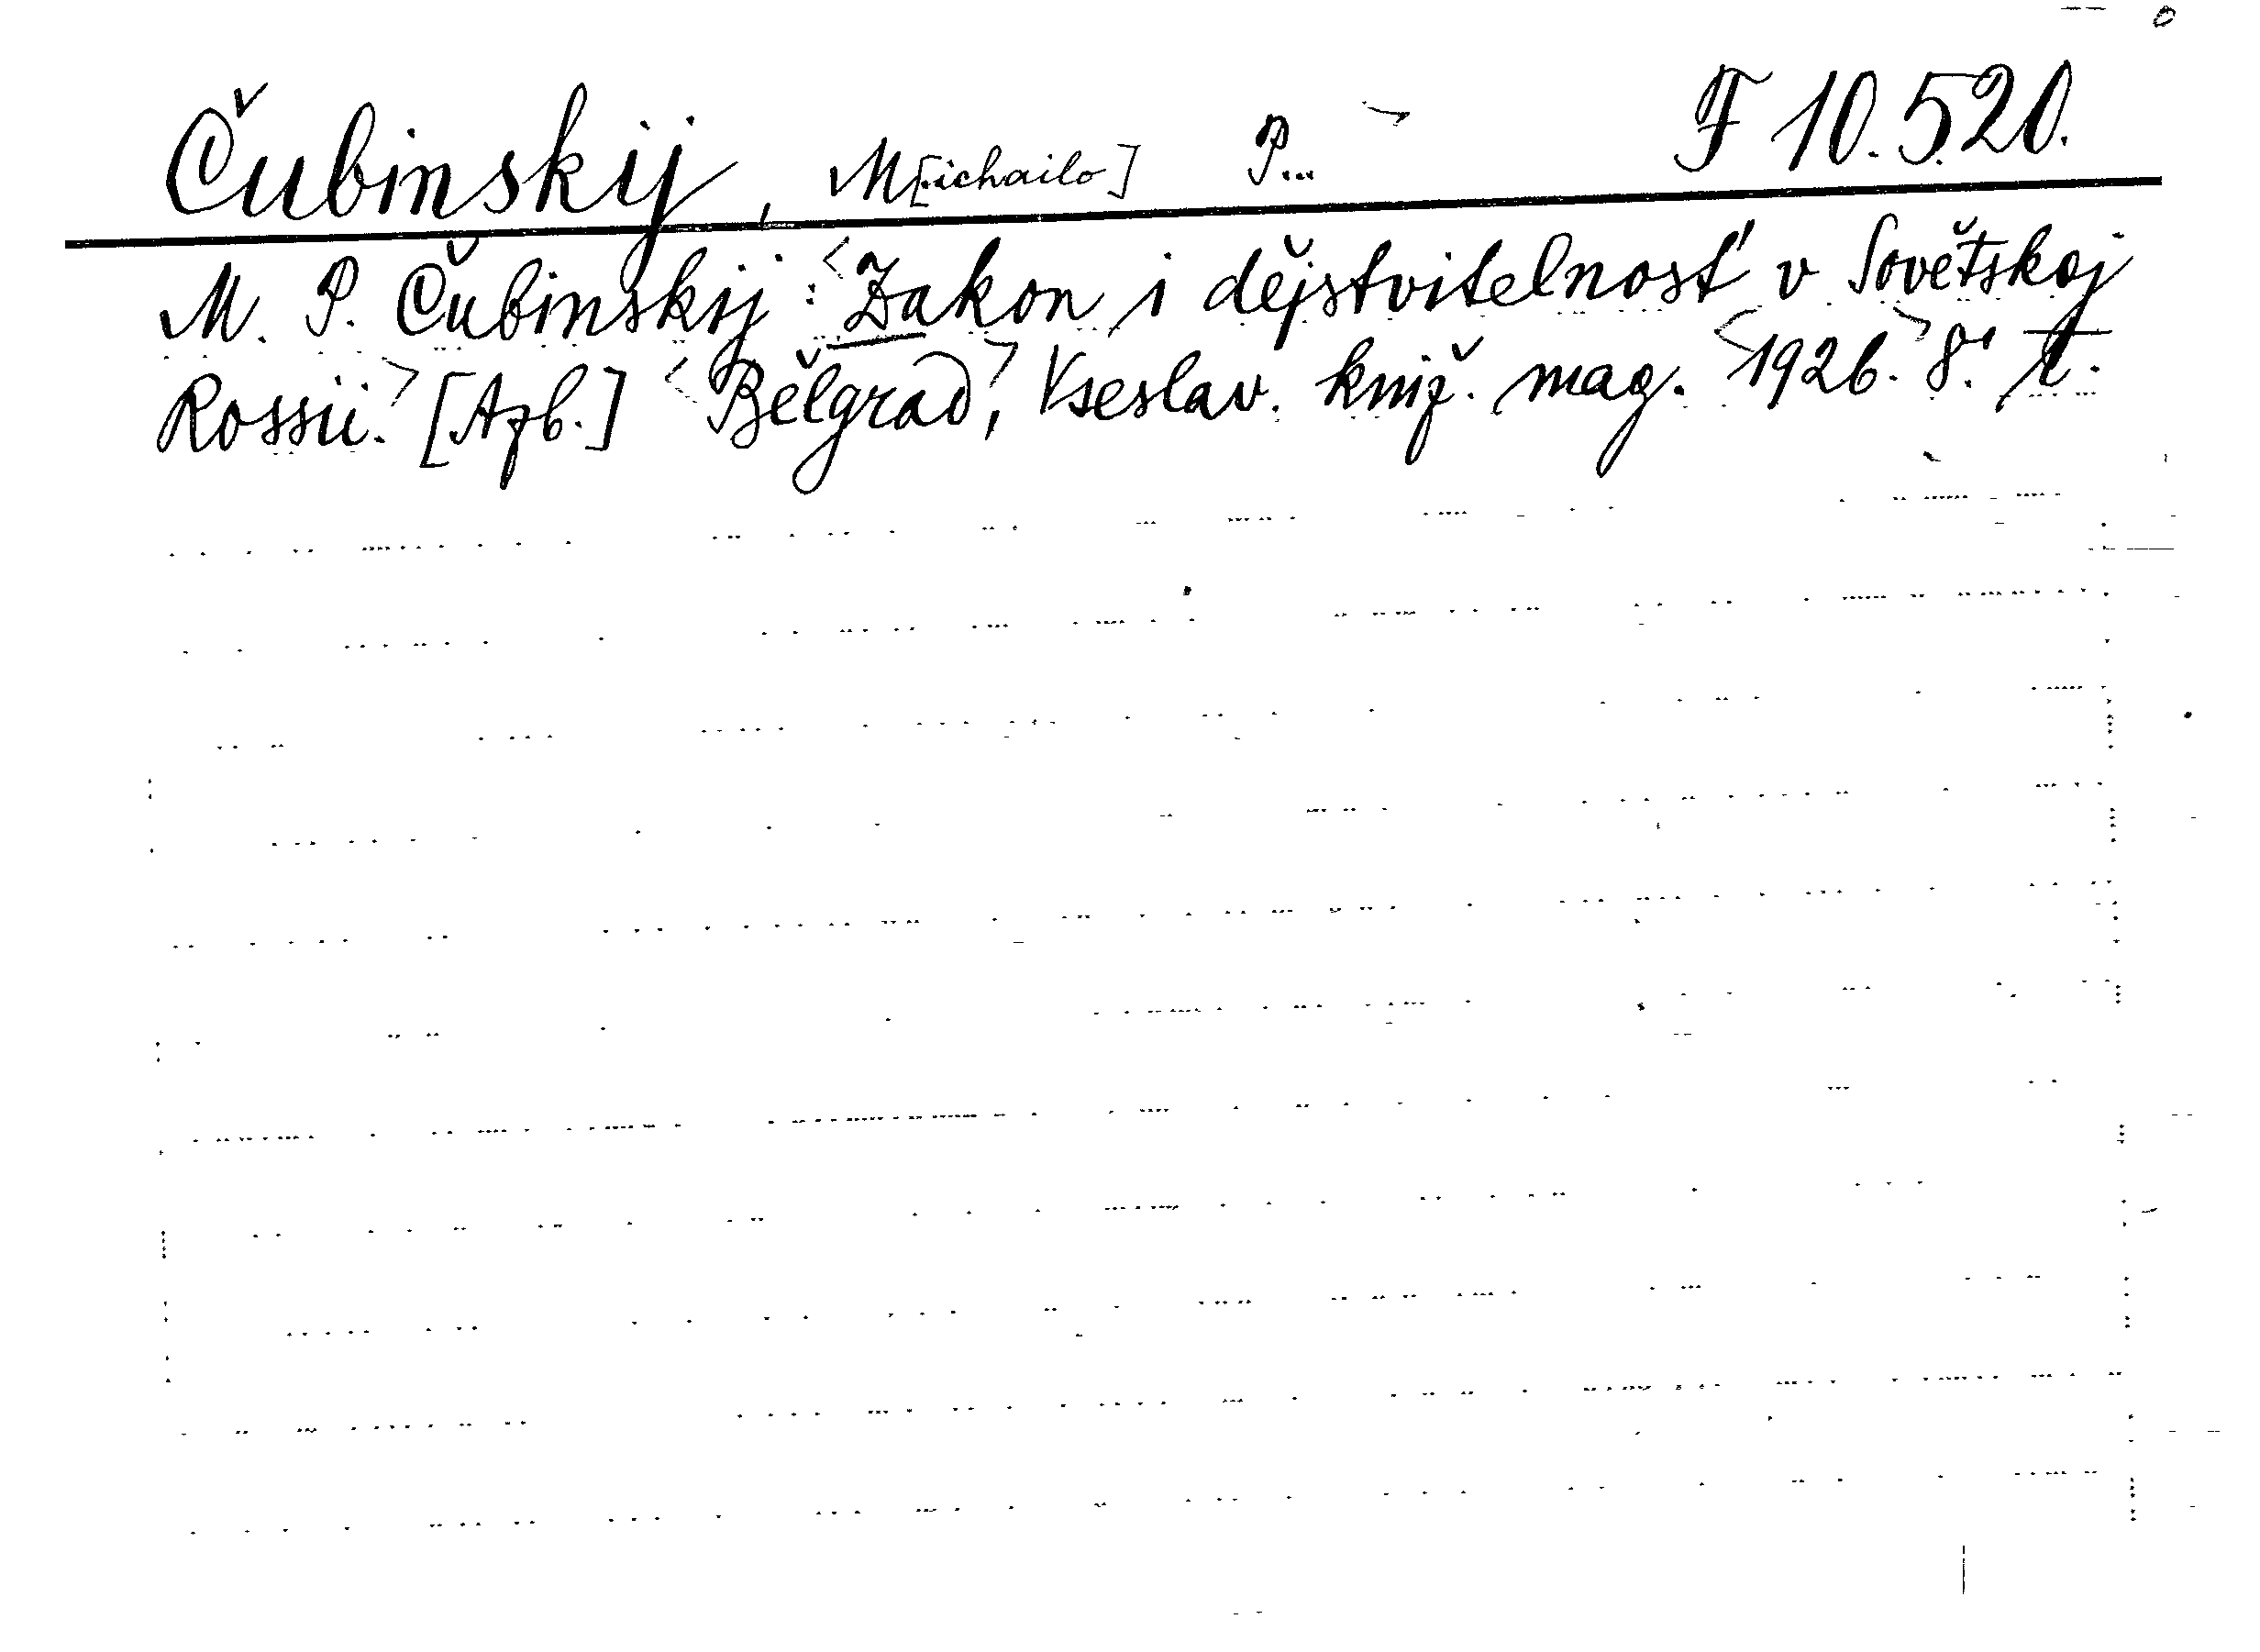 Čubinskij, M[ichailo] P... F 10.520.
M. P. Čubinskij: <Zakon i dějstvitelnost' v Sovětskoj
Rossii.> [Azb.] <Bělgrad,> Vseslav. kniž. mag. <1926.> 8°.